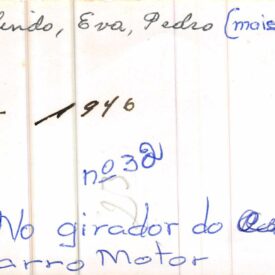 Eva, Pedro (mais
1946
nº 32
No girador do
arro Motor